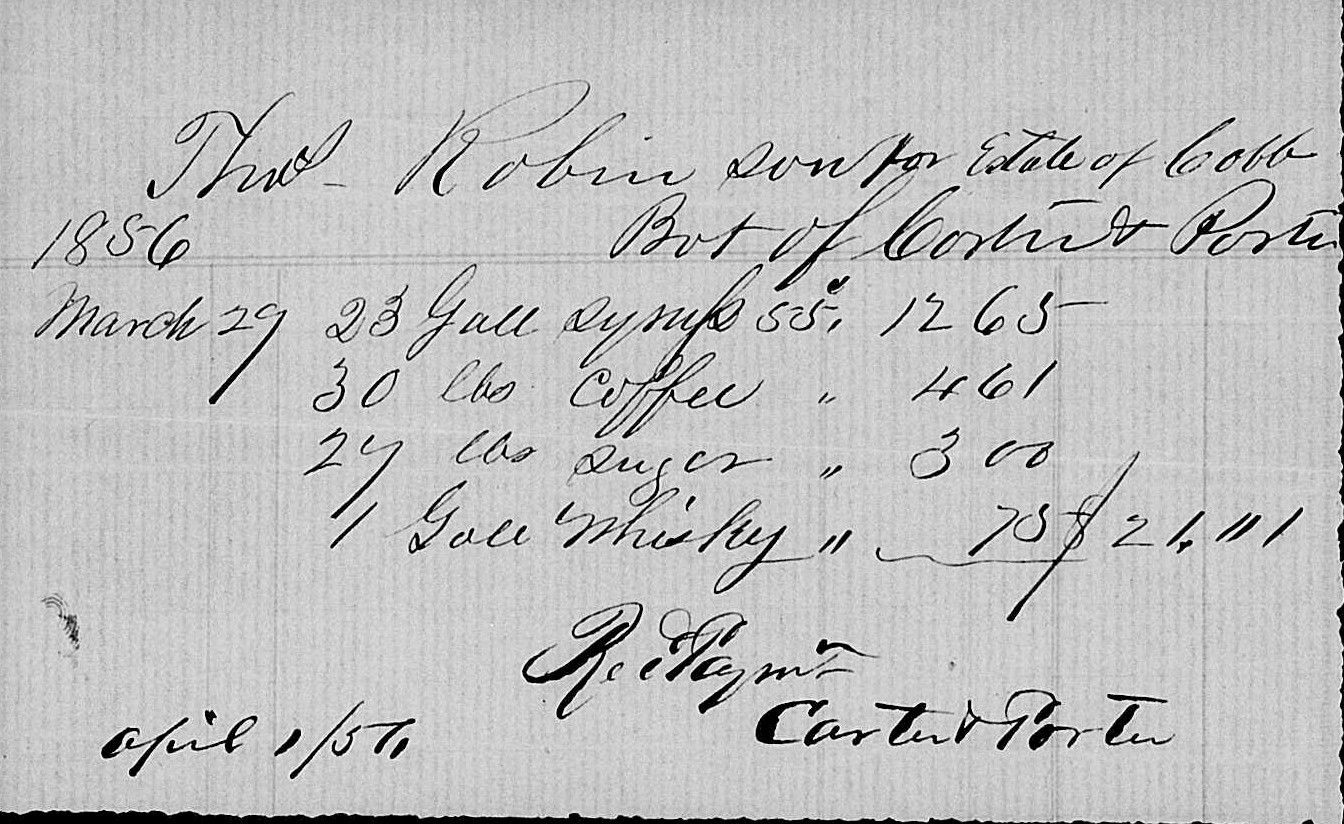 Thos Robinson for Estate of Cobb
1856 Bot of Carter & Porter
March 29 23 Gall syrup 55. 12 65
30 lbs coffee " 4 61
27 lbs suger " 3 00
1 Gall Whisky " 75 $21,"1
Recd Paymt
Carter & Porter
April 1/56